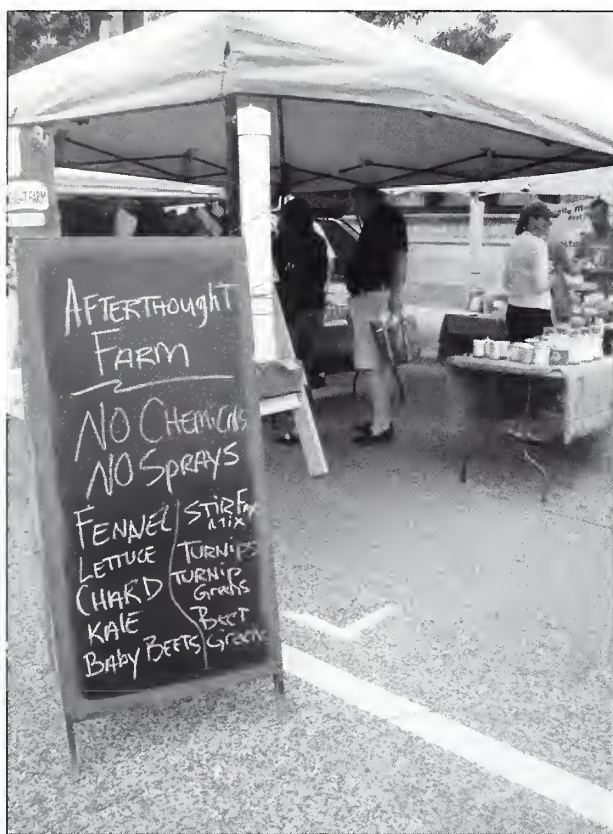 AFTERTHOUGHT
FARM
NO CHEMICALS
NO SPRAYS
FENNEL
LETTUCE
CHARD
KALE
BABY BEETS
STIR FRY
MIX
TURNIPS
TURNIP
GREENS
BEET
GREENS
FARM